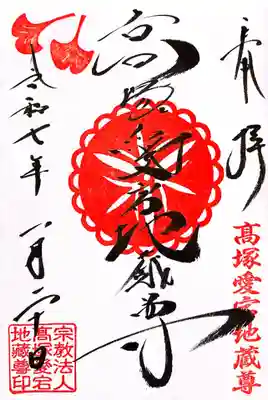 奉拝
高塚愛宕地蔵尊
髙塚愛宕地蔵尊
令和七年 八月二十日
宗教法人
髙塚愛宕
地蔵尊印